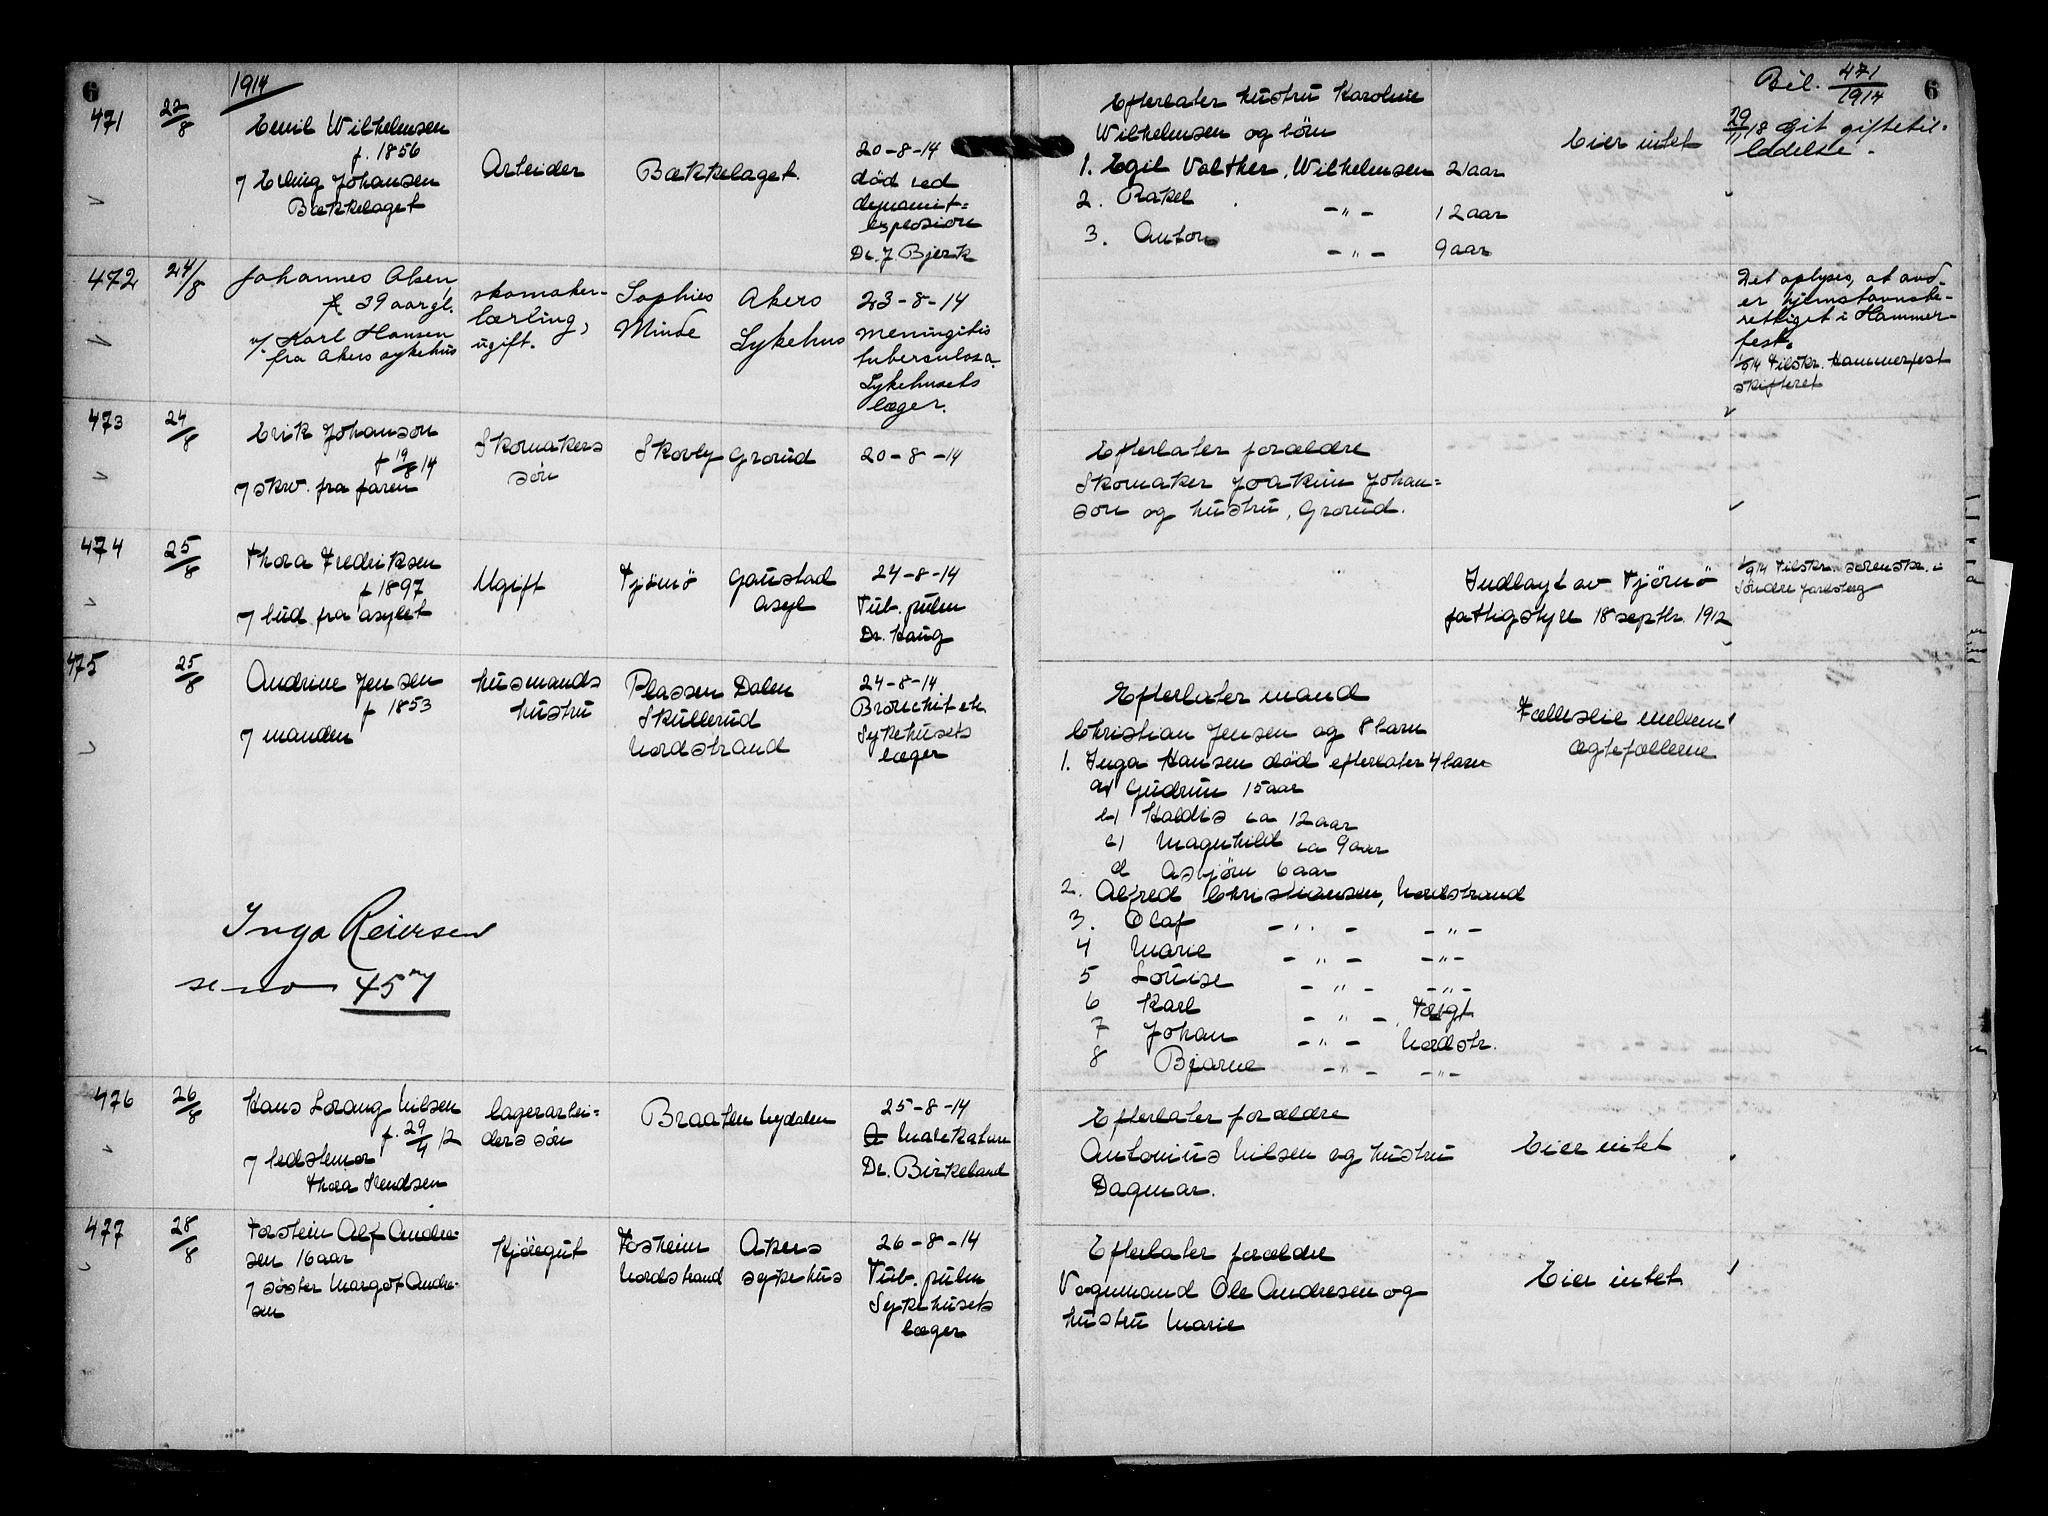 6
1914
471
22/8
Emil Wilhelmsen
f. 1856
v/ Erling Johansen
Bækkelaget
Arbeider
Bækkelaget.
20-8-14
død ved
dynamit=
explosion
Dr. J. Bjerk
472
24/8
Johannes Olsen,
39 aar gl.
v/. Karl Hansen
fra Akers sykehus
skomaker-
lærling,
ugift.
Sophies
Minde
Akers
Sykehus
23-8-14
meningitis
tuberculosa
Sykehusets
læger.
473
24/8
Erik Johanson
f 19/8 14
v/ skr. fra faren
Skomakers
søn
Skovly Grorud
20-8-14
474
25/8
Thora Fredriksen
f 1897
v/ bud fra asylet
Ugift
Tjømø
Gaustad
asyl
24-8-14
Tub. pulm
Dr. Haug
475
25/8
Andrine Jensen
f 1853
v/ manden
husmands
hustru
Plassen Dalen
Skullerud
Nordstrand
24-8-14
Bronchit etc
Sykehusets
læger
Inga Reiersen
se no 457
476
26/8
Hans Lorang Nilsen
f. 29/4 12
v/ bedstemor
Thora Svendsen
lagerarbei=
ders søn
Braaten Nydalen
25-8-14
Dr. Birkeland
477
28/8
Torstein Alf Andre-
sen 16 aar
v/ søster Margot Andre-
sen
Kjøregut
Tosheim
Nordstrand
Akers
sykehus
26-8-14
Tub. pulm
Sykehusets
læger
6
Bil. 471/1914
Efterlater hustru Karoline
Wilhelmsen og børn
1. Egil Valther, Wilhelmsen 21 aar
2. Rakel -"- 12 aar
3. Anton -"- 9 aar
Eier intet
29/11 18 Git giftetil-
ladelse.
Det oplyses, at avd.
er hjemstavnsbe-
rettiget i Hammer-
fest.
1/9 14 Tilskr. Hammerfest
skifteret
Efterlater forældre
Skomaker Joakim Johan=
son og hustru, Grorud.
Indlagt av Tjømø
fattigstyre 18 septbr. 1912
1/9 14 Tilskr. sorenskr. i
Søndre Jarlsberg
Efterlater mand
Christian Jensen og 8 barn
1. Inga Hansen død efterlater 4 barn
a) Gudrun 15 aar
b) Haldis ca 12 aar
c) Magnhild ca 9 aar
d Asbjørn 6 aar
2. Alfred Christiansen, Nordstrand
3. Olaf -"- -"-
4 Marie -"- -"-
5 Louise -"- -"-
6 Karl -"-
7 Johan -"- Nordstr.
8 Bjarne -"- -"-
Fælleseie mellem
ægtefællerne
Efterlater forældre
Antonius Nilsen og hustru
Dagmar.
Eier intet
Efterlater forældre
Vognmand Ole Andresen og
hustru Marie
Eier intet